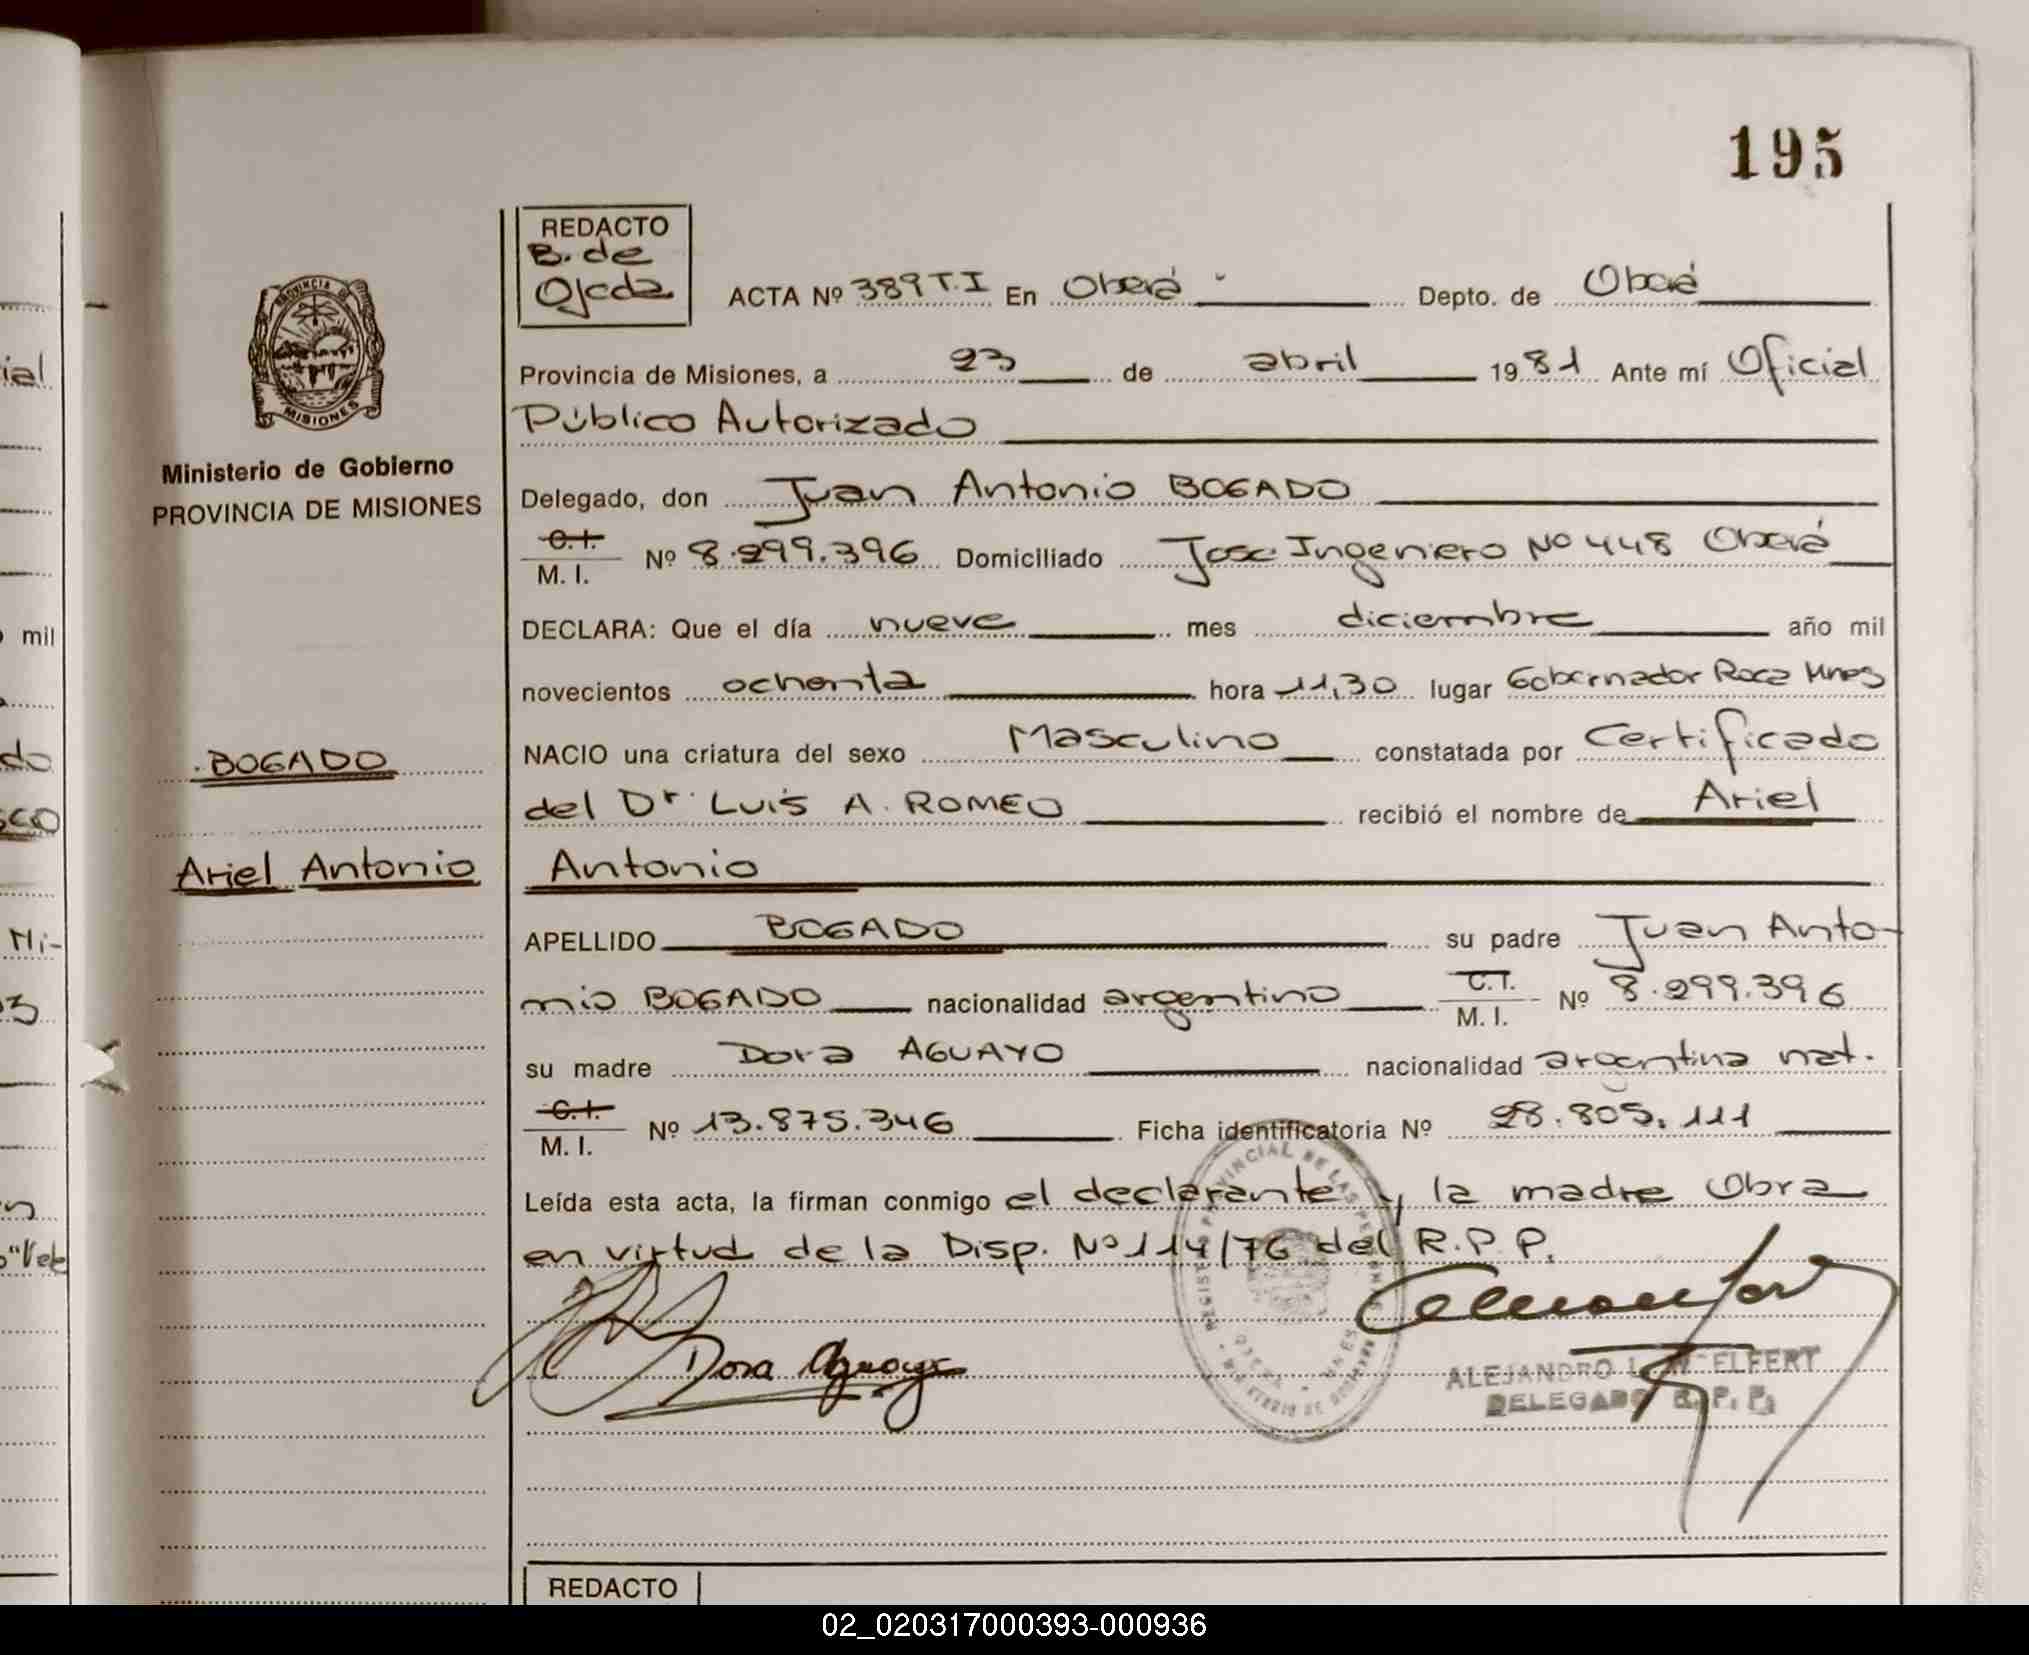 195
REDACTO
B. de
Ojeda
ACTA Nº 389 T.I En Oberá Depto. de Oberá
Provincia de Misiones, a 23 de abril 1981 Ante mí Oficial
Público Autorizado
Delegado, don Juan Antonio BOGADO
C.I.
M. I. Nº 8.299.396 Domiciliado Jose Ingeniero Nº 448 Oberá
DECLARA: Que el día nueve mes diciembre año mil
novecientos ochenta hora 11,30 lugar Gobernador Roca Mnes
NACIO una criatura del sexo Masculino constatada por Certificado
del Dr. LUIS A. ROMEO recibió el nombre de Ariel
Antonio
APELLIDO BOGADO su padre Juan Anto-
nio BOGADO nacionalidad argentino C.I.
M. I. Nº 8.299.396
su madre Dora AGUAYO nacionalidad argentina nat.
C.I.
M. I. Nº 13.875.346 Ficha identificatoria Nº 28.805.111
Leída esta acta, la firman conmigo el declarante y la madre Obra
en virtud de la Disp. Nº 114/76 del R.P.P.
Dora Aguayo
ALEJANDRO L.
DELEGADO R. P. P.
REDACTO
PROVINCIA DE
MISIONES
Ministerio de Gobierno
PROVINCIA DE MISIONES
BOGADO
Ariel Antonio
mil
02_020317000393-000936